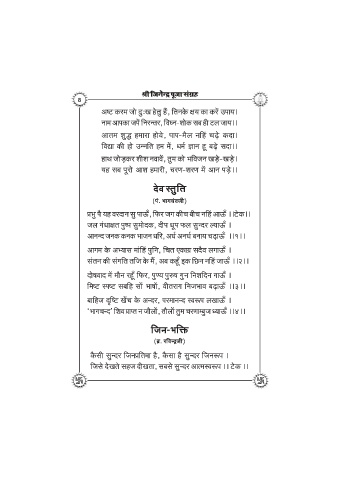 श्री जिनेन्द्र पूजा संग्रह
8
अष्ट करम जो दुःख हेतु हैं, तिनके क्षय का करें उपाय।
नाम आपका जपें निरन्तर, विघ्न-शोक सब ही टल जाय।।
आतम शुद्ध हमारा होवे, पाप-मैल नहिं चढ़े कदा।
विद्या की हो उन्नति हम में, धर्म ज्ञान हू बढ़े सदा।।
हाथ जोड़कर शीश नवावें, तुम को भविजन खड़े-खड़े।
यह सब पूरो आश हमारी, चरण-शरण में आन पड़े।।
देव स्तुति
(पं. भागचंदजी)
प्रभु पै यह वरदान सु पाऊँ, फिर जग कीच बीच नहिं आऊँ ।।टेक।।
जल गंधाक्षत पुष्प सुमोदक, दीप धूप फल सुन्दर ल्याऊँ ।
आनन्द जनक कनक भाजन धरि, अर्घ अनर्घ बनाय चढ़ाऊँ ।।१।।
आगम के अभ्यास मांहिं पुनि, चित एकाग्र सदैव लगाऊँ ।
संतन की संगति तजि के मैं, अब कहूँ इक छिन नहिं जाऊँ ।।२।।
दोषवाद में मौन रहूँ फिर, पुण्य पुरुष गुन निशदिन गाऊँ ।
मिष्ट स्पष्ट सबहि सों भाषौं, वीतराग निजभाव बढ़ाऊँ ।।३।।
बाहिज दृष्टि खेंच के अन्दर, परमानन्द स्वरूप लखाऊँ ।
'भागचन्द' शिव प्राप्त न जौलों, तौलों तुम चरणाम्बुज ध्याऊँ ।।४।।
जिन-भक्ति
(ब्र. रविन्द्रजी)
कैसी सुन्दर जिनप्रतिमा है, कैसा है सुन्दर जिनरूप ।
जिसे देखते सहज दीखता, सबसे सुन्दर आत्मस्वरूप ।। टेक ।।